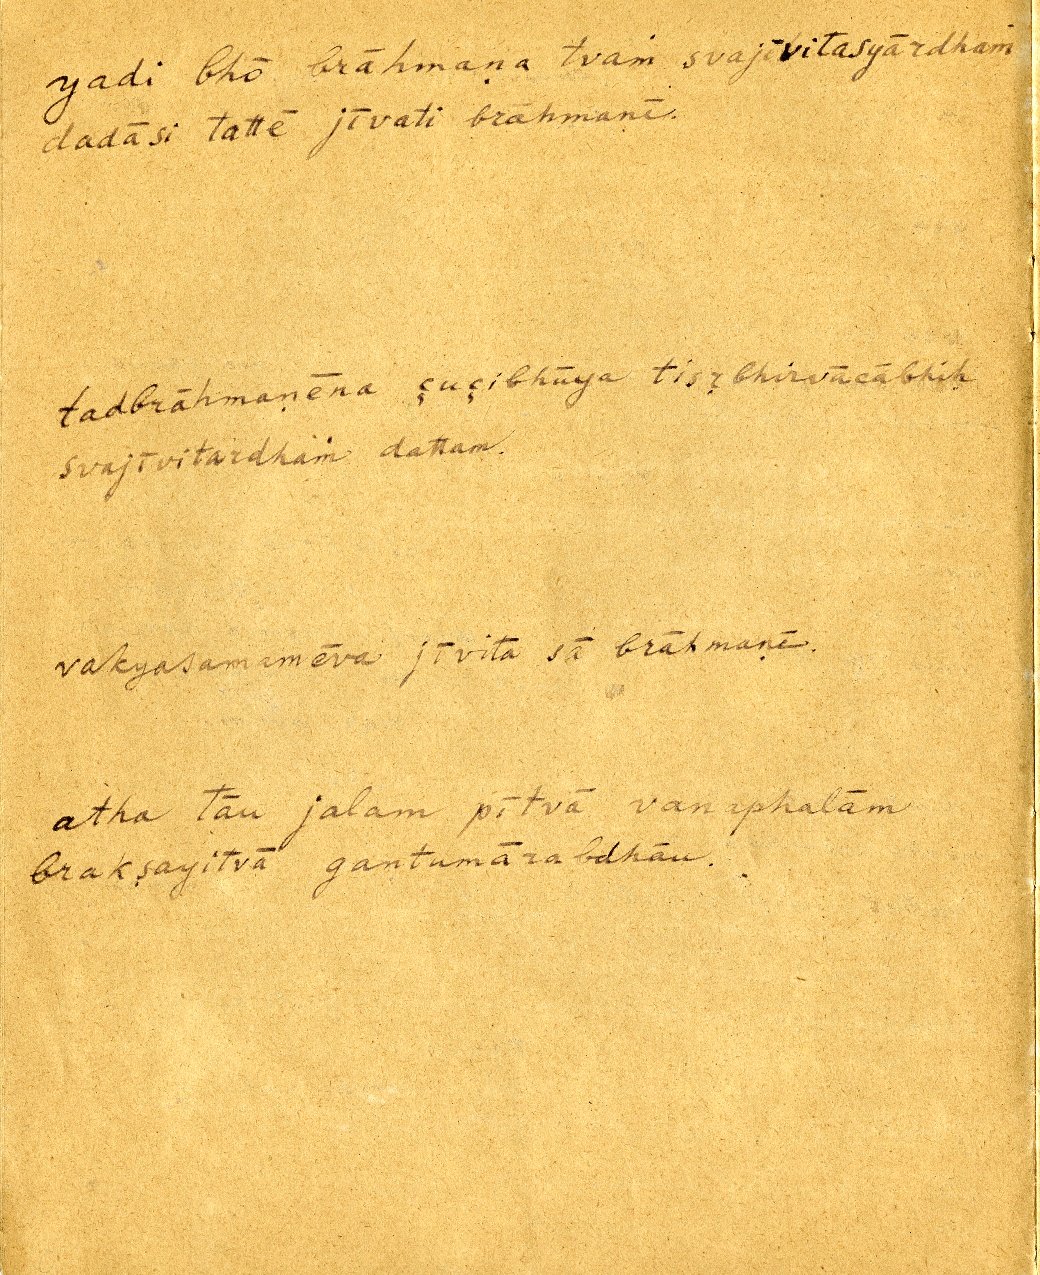 yadi bhō brāhmaṇa tvaṁ svajīvitasyārdhaṁ
dadāsi tattē jīvati brāhmaṇē.
tadbrāhmaṇēna çuçibhūya tisṛbhirvācābhiḥ
svajīvitardhaṁ dattam.
vakyasamamēva jīvita sā brāhmaṇē.
atha tāu jalam pītvā vanaphalām
brakṣayitvā gantumārabdhāu.